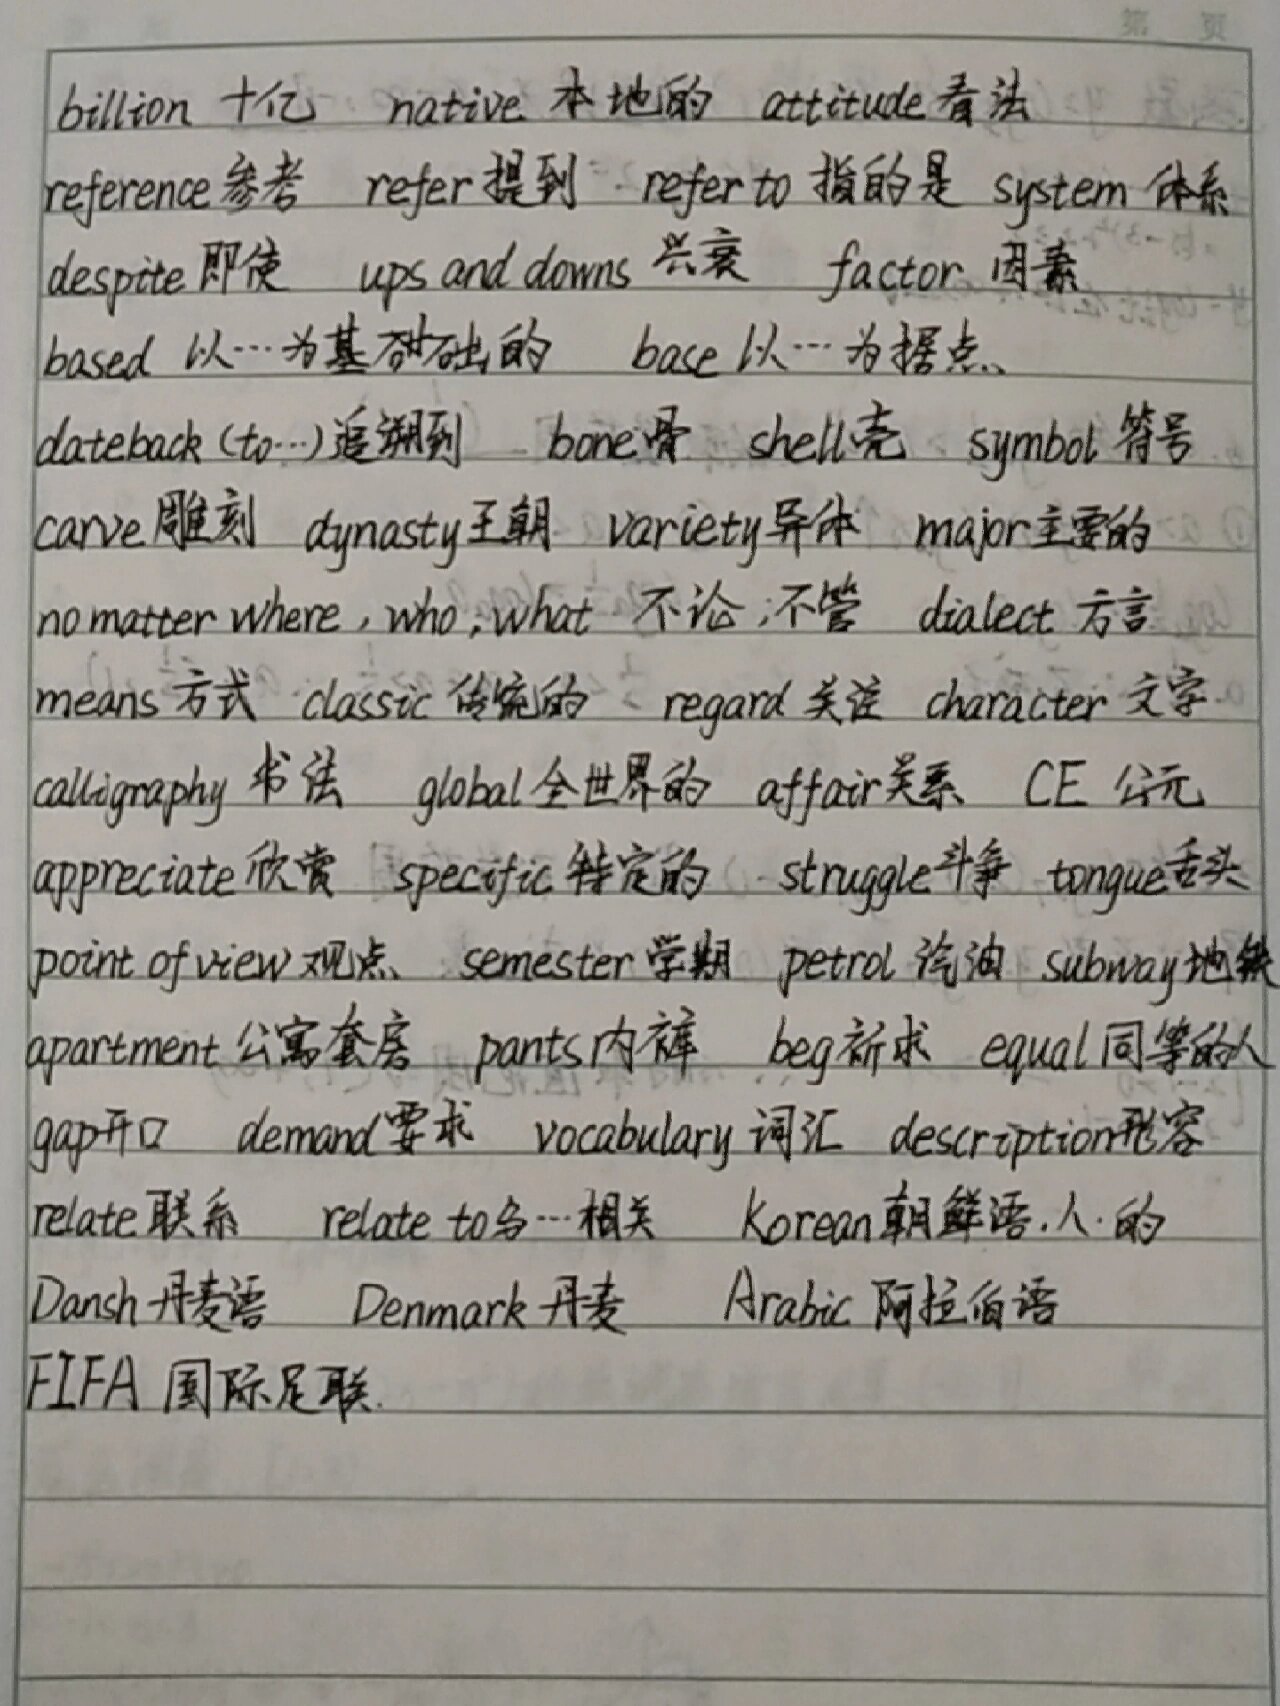 第 页
billion 十亿 native 本地的 attitude 看法
reference 参考 refer 提到 refer to 指的是 system 体系
despite 即使 ups and downs 兴衰 factor 因素
based 以…为基础的 base 以…为据点
dateback (to…) 追溯到 bone 骨 shell 壳 symbol 符号
carve 雕刻 dynasty 王朝 variety 异体 major 主要的
no matter where, who, what 不论;不管 dialect 方言
means 方式 classic 传统的 regard 关注 character 文字
calligraphy 书法 global 全世界的 affair 关系 CE 公元
appreciate 欣赏 specific 特定的 struggle 斗争 tongue 舌头
point of view 观点 semester 学期 petrol 汽油 subway 地铁
apartment 公寓套房 pants 内裤 beg 祈求 equal 同等的人
gap 开口 demand 要求 vocabulary 词汇 description 形容
relate 联系 relate to 与…相关 Korean 朝鲜语.人.的
Dansh 丹麦语 Denmark 丹麦 Arabic 阿拉伯语
FIFA 国际足联.